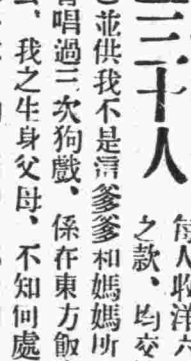 三十人
每人收洋
之款、均交
並供我不是這爹爹和媽媽所
唱過三次狗戲、係在東方飯
、我之生身父母、不知何處